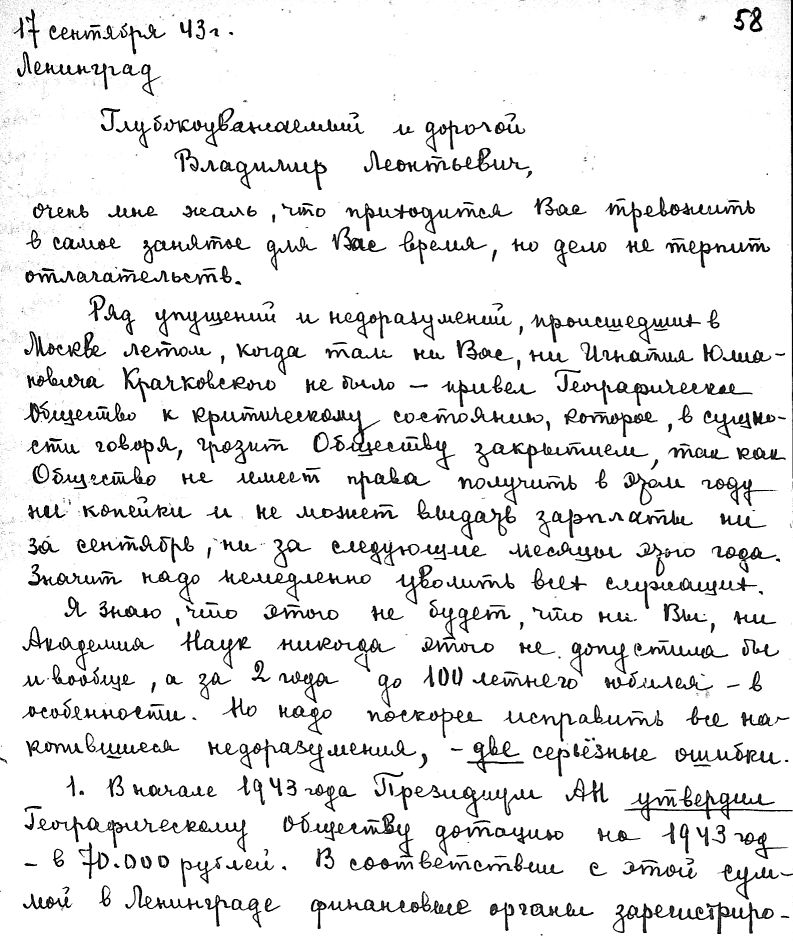 58
17 сентября 43 г.
Ленинград
Глубокоуважаемый и дорогой
Владимир Леонтьевич,
очень мне жаль, что приходится Вас тревожить
в самое занятое для Вас время, но дело не терпит
отлагательств.
Ряд упущений и недоразумений, происшедших в
Москве летом, когда там ни Вас, ни Игнатия Юлиа-
новича Крачковского не было – привел Географическое
Общество к критическому состоянию, которое, в сущно-
сти говоря, грозит Обществу закрытием, так как
Общество не имеет права получить в этом году
ни копейки и не может выдать зарплаты ни
за сентябрь, ни за следующие месяцы этого года.
Значит надо немедленно уволить всех служащих.
Я знаю, что этого не будет, что ни Вы, ни
Академия Наук никогда этого не допустила бы
и вообще, а за 2 года до 100 летнего юбилея – в
особенности. Но надо поскорее исправить все на-
копившиеся недоразумения, – две серьёзные ошибки.
1. В начале 1943 года Президиум АН утвердил
Географическому Обществу дотацию на 1943 год
– в 70.000 рублей. В соответствии с этой сум-
мой в Ленинграде финансовые органы зарегистриро-